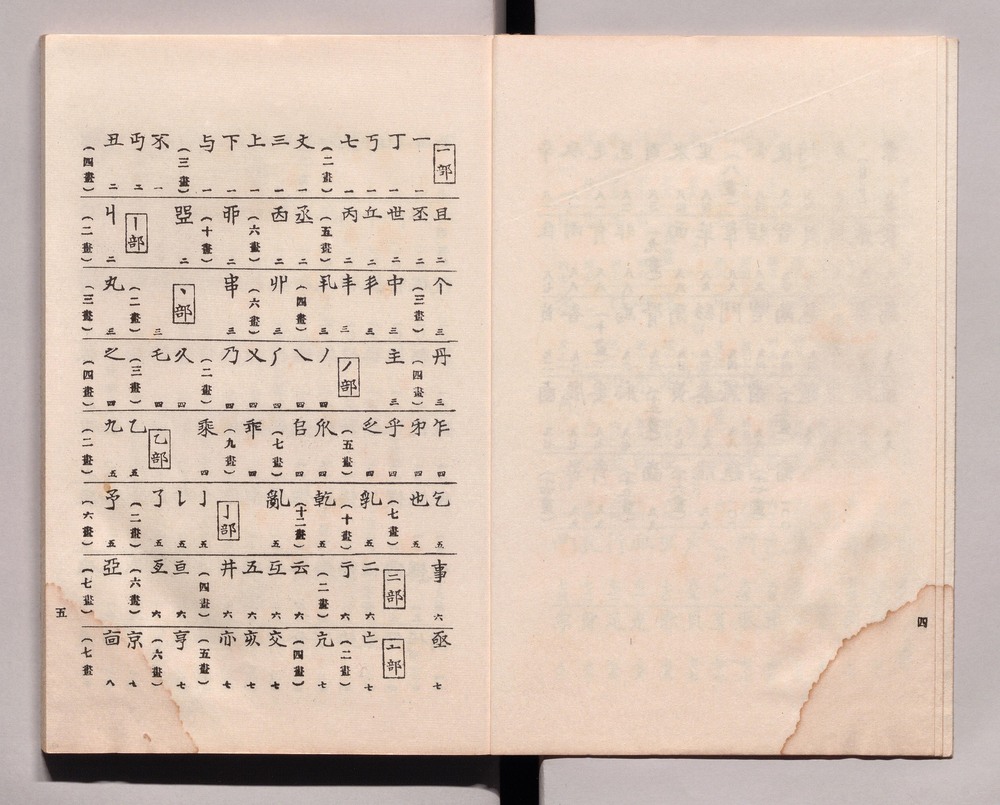 一部 一 一 丁 一 丂 一 七 一 (二畫) 丈 一 三 一 上 一 下 一 与 一 (三畫) 不 一 丏 二 丑 二 (四畫)
且 二 丕 二 世 二 丘 二 丙 二 (五畫) 丞 二 㐁 二 (六畫) 二 (十畫) 二 丨部 丩 二 (二畫)
个 三 (三畫) 中 三 三 丰 三 三 (四畫) 丱 三 (六畫) 串 三 丶部 三 (二畫) 丸 三 (三畫)
丹 三 (四畫) 主 三 丿部 丿 四 乀 四 四 乂 四 乃 四 (二畫) 久 四 乇 四 (三畫) 之 四 (四畫)
乍 四 四 乎 四 四 (五畫) 四 四 (七畫) 乖 四 (九畫) 乘 四 乙部 乙 五 九 五 (二畫)
乞 五 也 五 (七畫) 乳 五 (十畫) 乾 五 (十二畫) 亂 五 亅部 亅 五 五 了 五 (二畫) 予 五 (六畫)
事 六 二部 二 六 亍 六 (二畫) 云 六 互 六 五 六 井 六 (四畫) 亘 六 六 (六畫) 亞 六 (七畫)
亟 七 亠部 亡 七 (二畫) 亢 七 (四畫) 交 七 亥 七 亦 七 (五畫) 亨 七 (六畫) 京 八 八 (七畫
五
四